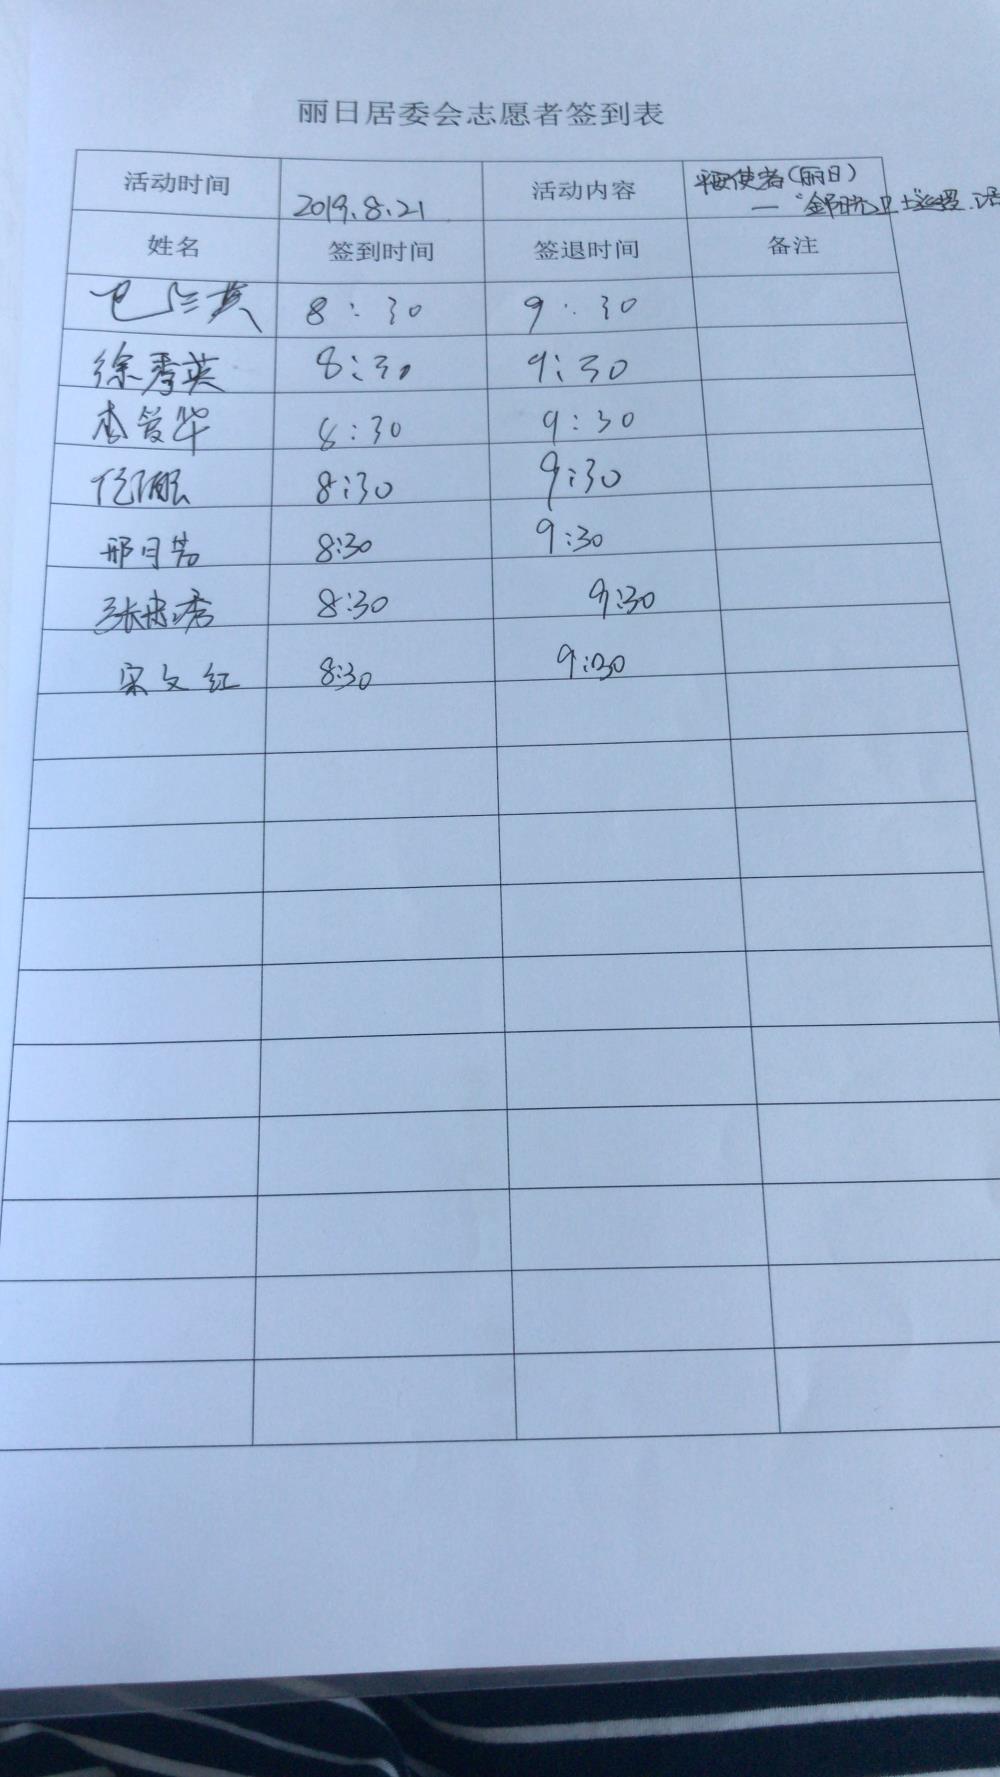 丽日居委会志愿者签到表
活动时间 2019.8.21 活动内容 平安使者(丽日)
姓名 签到时间 签退时间 备注
8:30 9:30
徐秀英 8:30 9:30
李爱华 8:30 9:30
8:30 9:30
邢月芳 8:30 9:30
张 秀 8:30 9:30
宋文红 8:30 9:30